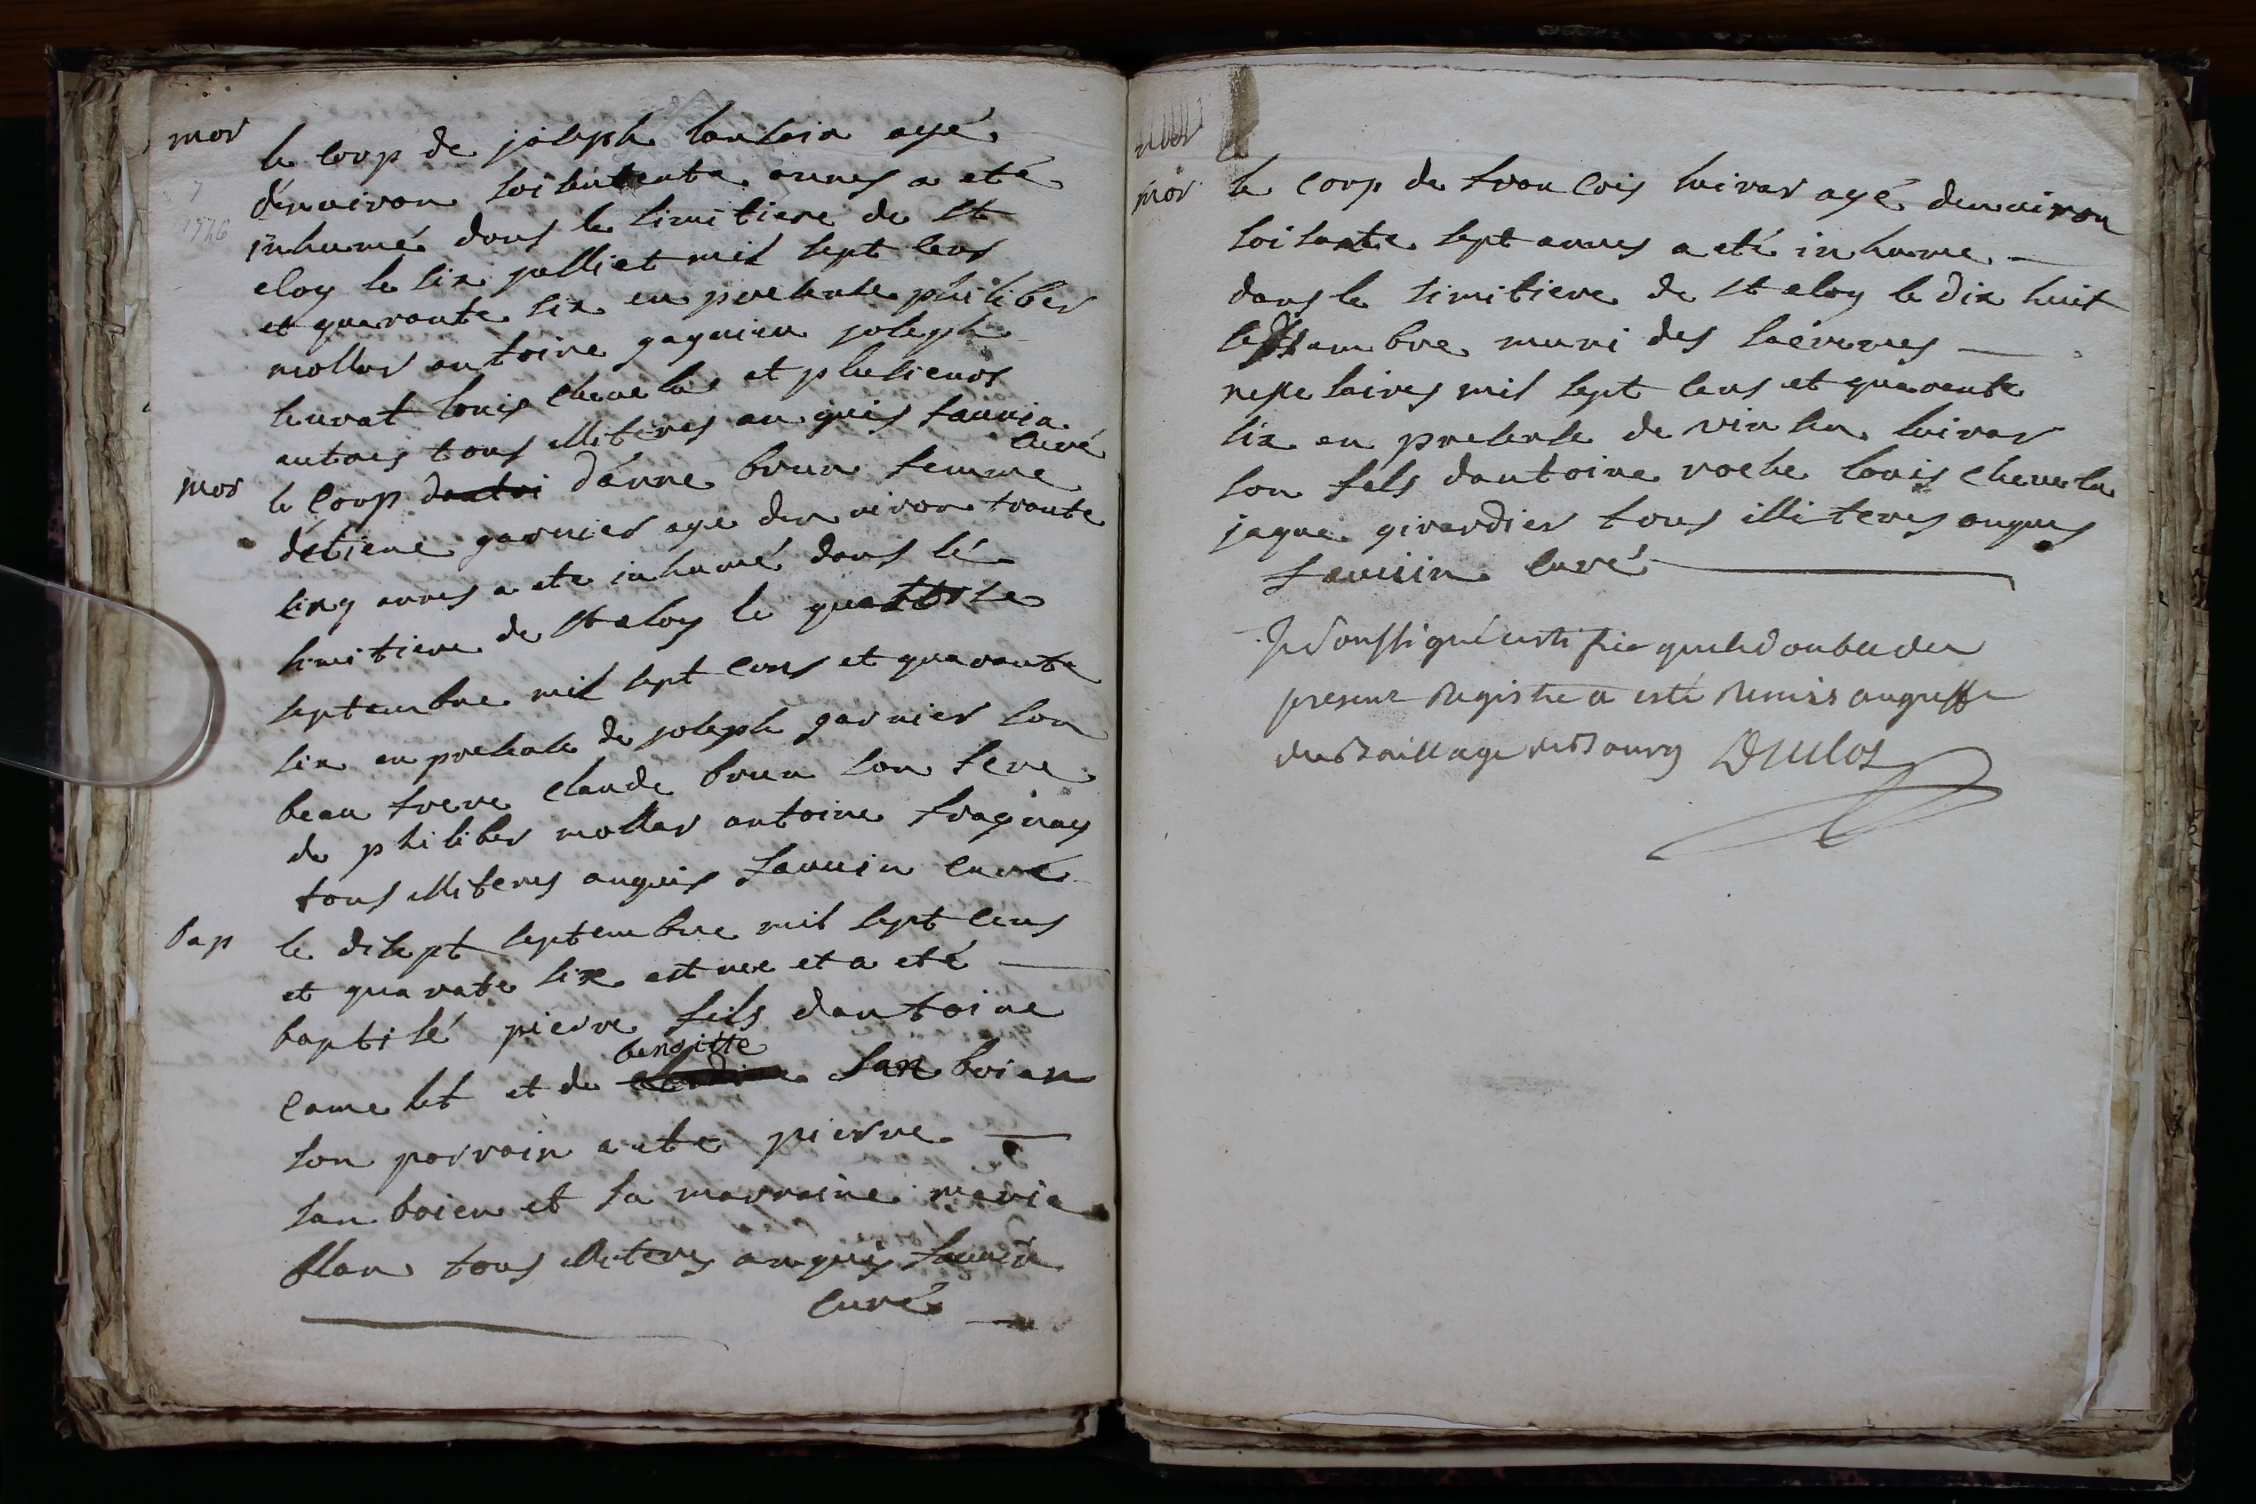 mor
le corp de joseph sanloin agé
dénuiron soisentente annes a eté
1746
inhumé dans le simitiere de st
eloy le six julliet mil sept cens
et quarante six en presense philiber
mollar antoine gagnieu joseph
heurat louis chenelu et plusieurs
autres tous illiteres an quis fauuin
curé
mor
le corp dantoi d'anne brun femme
détiene garnier agé denuiron trante
sinq annes a ete inhumé dans lé
simitiere de st eloy le quattorse
septembre mil sept cens et quarante
six en presense de joseph garnier son
beau frere claude brun son frere
de philiber mollar antoine fragnay
tous illiteres anquis fauuin curé
bap
le disept septembre mil sept cens
et quarate six est nee et a eté
baptisé pierre fils dantoine
benoitte
camelet et de san boien
son parrain a ete pierre
san boien et sa marraine marie
blan tous illiteres anquis fauuin
curé
mor
le corp de francois luirar agé denuiron
soisante sept annes a eté inhume
dans le simitiere de st eloy le dix huit
septambre muni des sacremes
nessesaires mil sept cens et quarente
six en presense de vinsen luirar
son fils dantoine roche louis chenelu
jaque girardier tous illiteres anques
fauuin curé
Je soussigné certifie que le double du
present Registre a esté Remis au greffe
du Baillage de Bourg